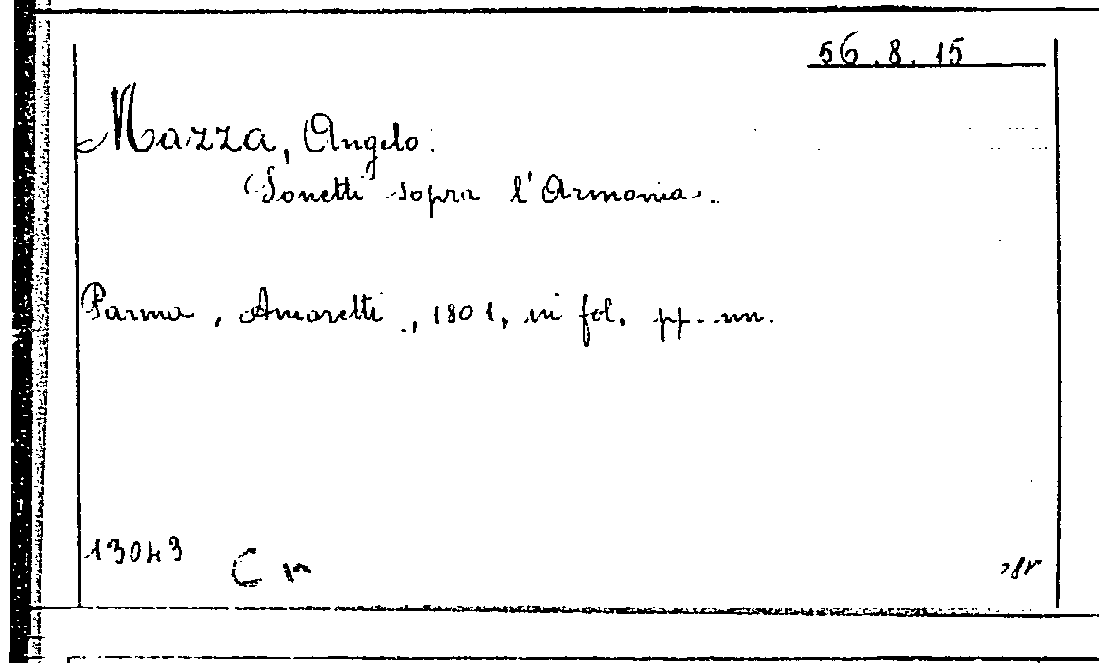 56.8.15
Mazza, Angelo.
Sonetti sopra l'Armonia.
Parma, Amoretti, 1801, in fol. pp. nn.
13043